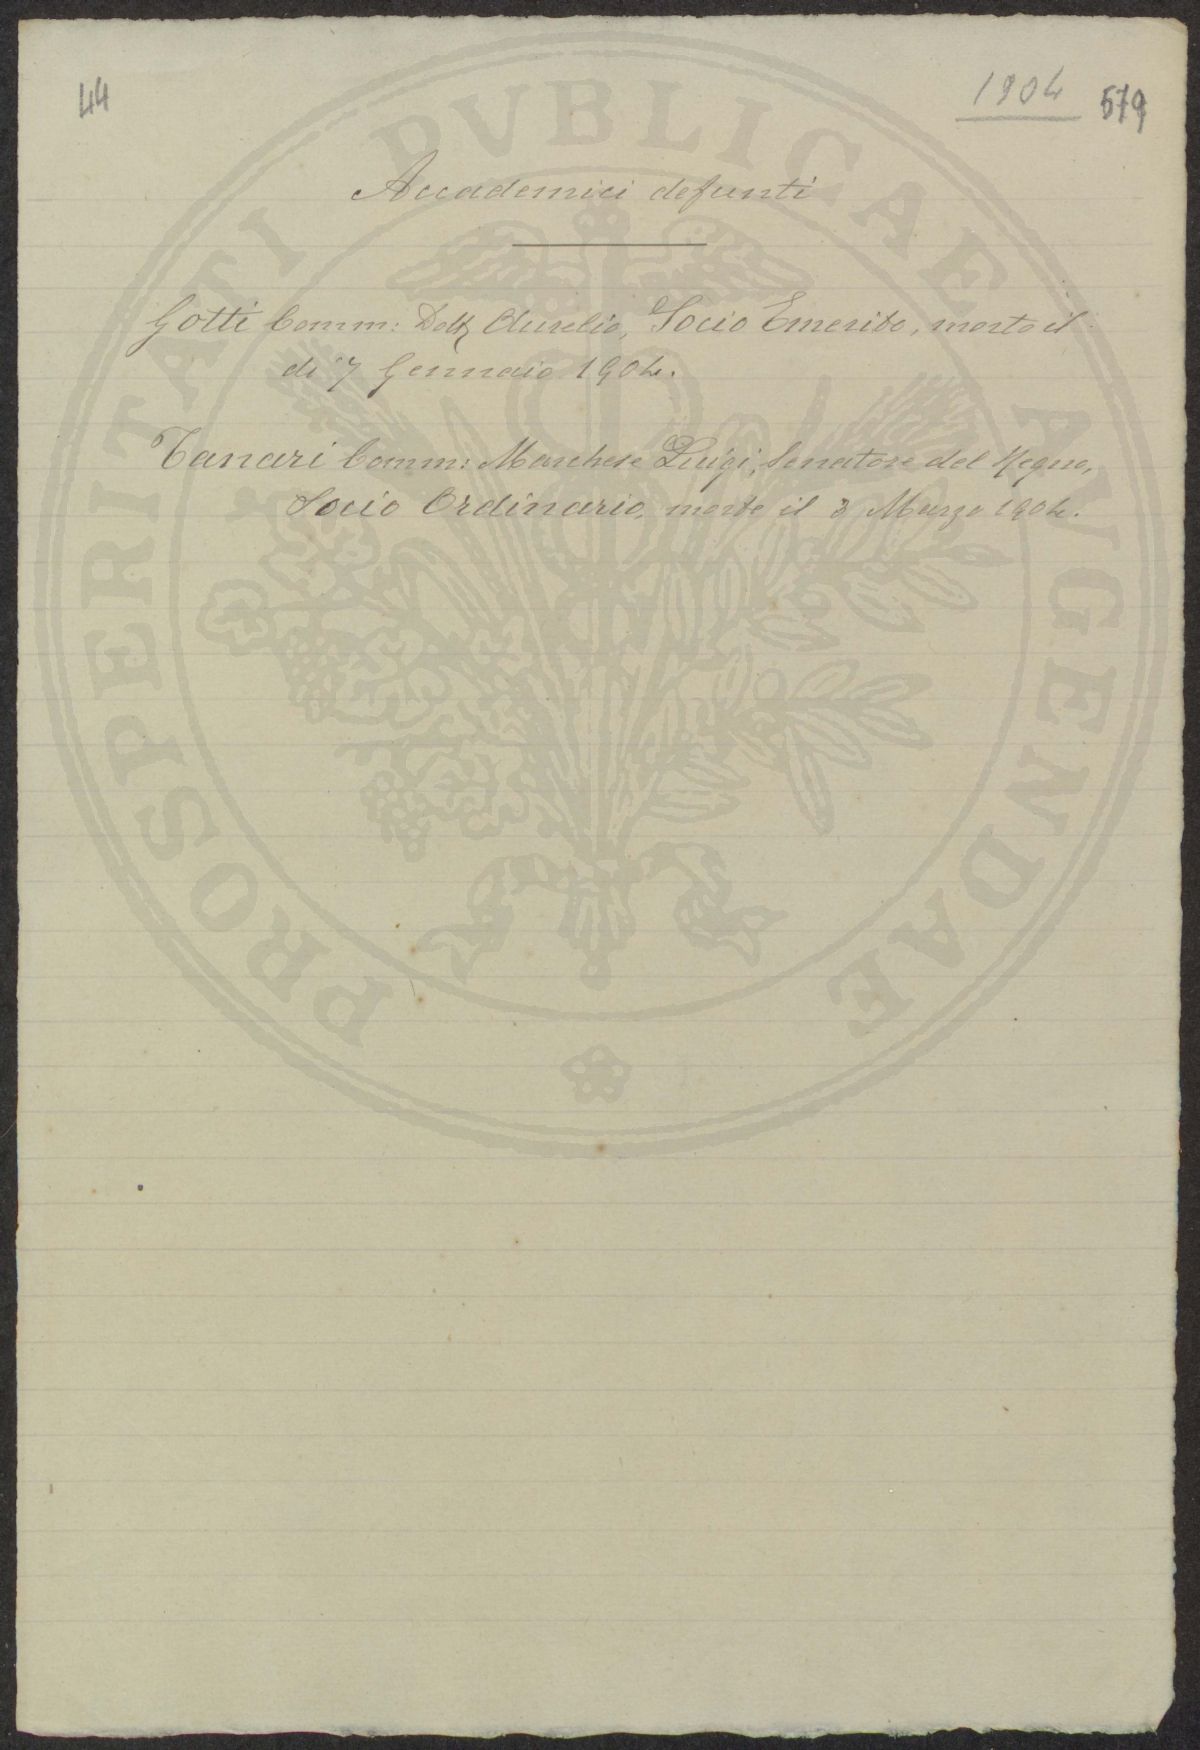 44
1904 579
Accademici defunti
Gotti Comm: Dott Aurelio, Socio Emerito, morto il
di 7 Gennaio 1904.
Tanari Comm: Marchese Luigi, Senatore del Regno,
Socio Ordinario, morto il 3 Marzo 1904.
PROSPERITATI PVBLICAE AVGENDAE